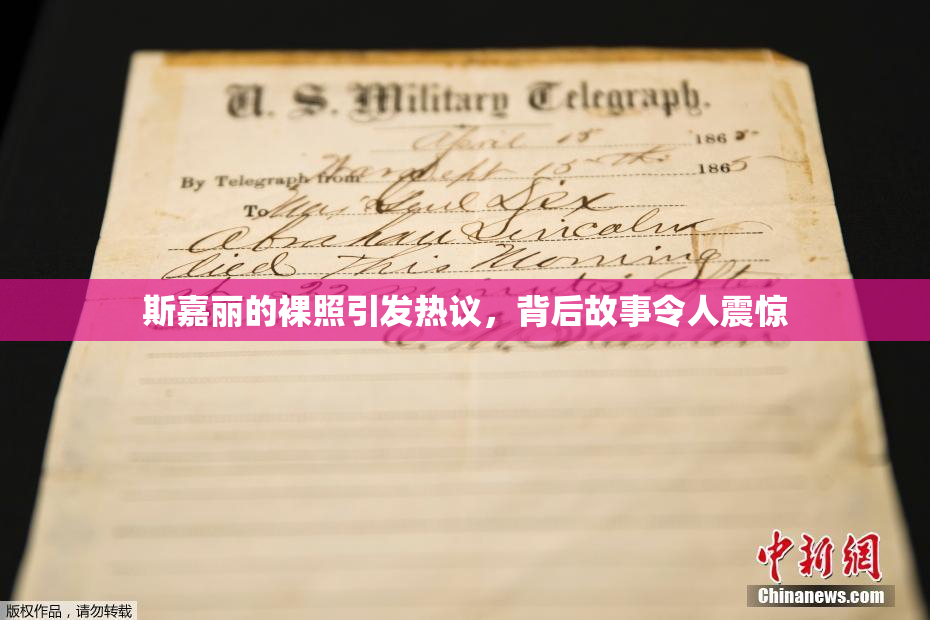 U. S. Military Telegraph.
April 15 1865
By Telegraph from War Dept 15th 1865
To Maj Genl Dix
Abraham Lincoln
died This Morning
at 22 minutes after
斯嘉丽的裸照引发热议，背后故事令人震惊
中新网
Chinanews.com
版权作品，请勿转载